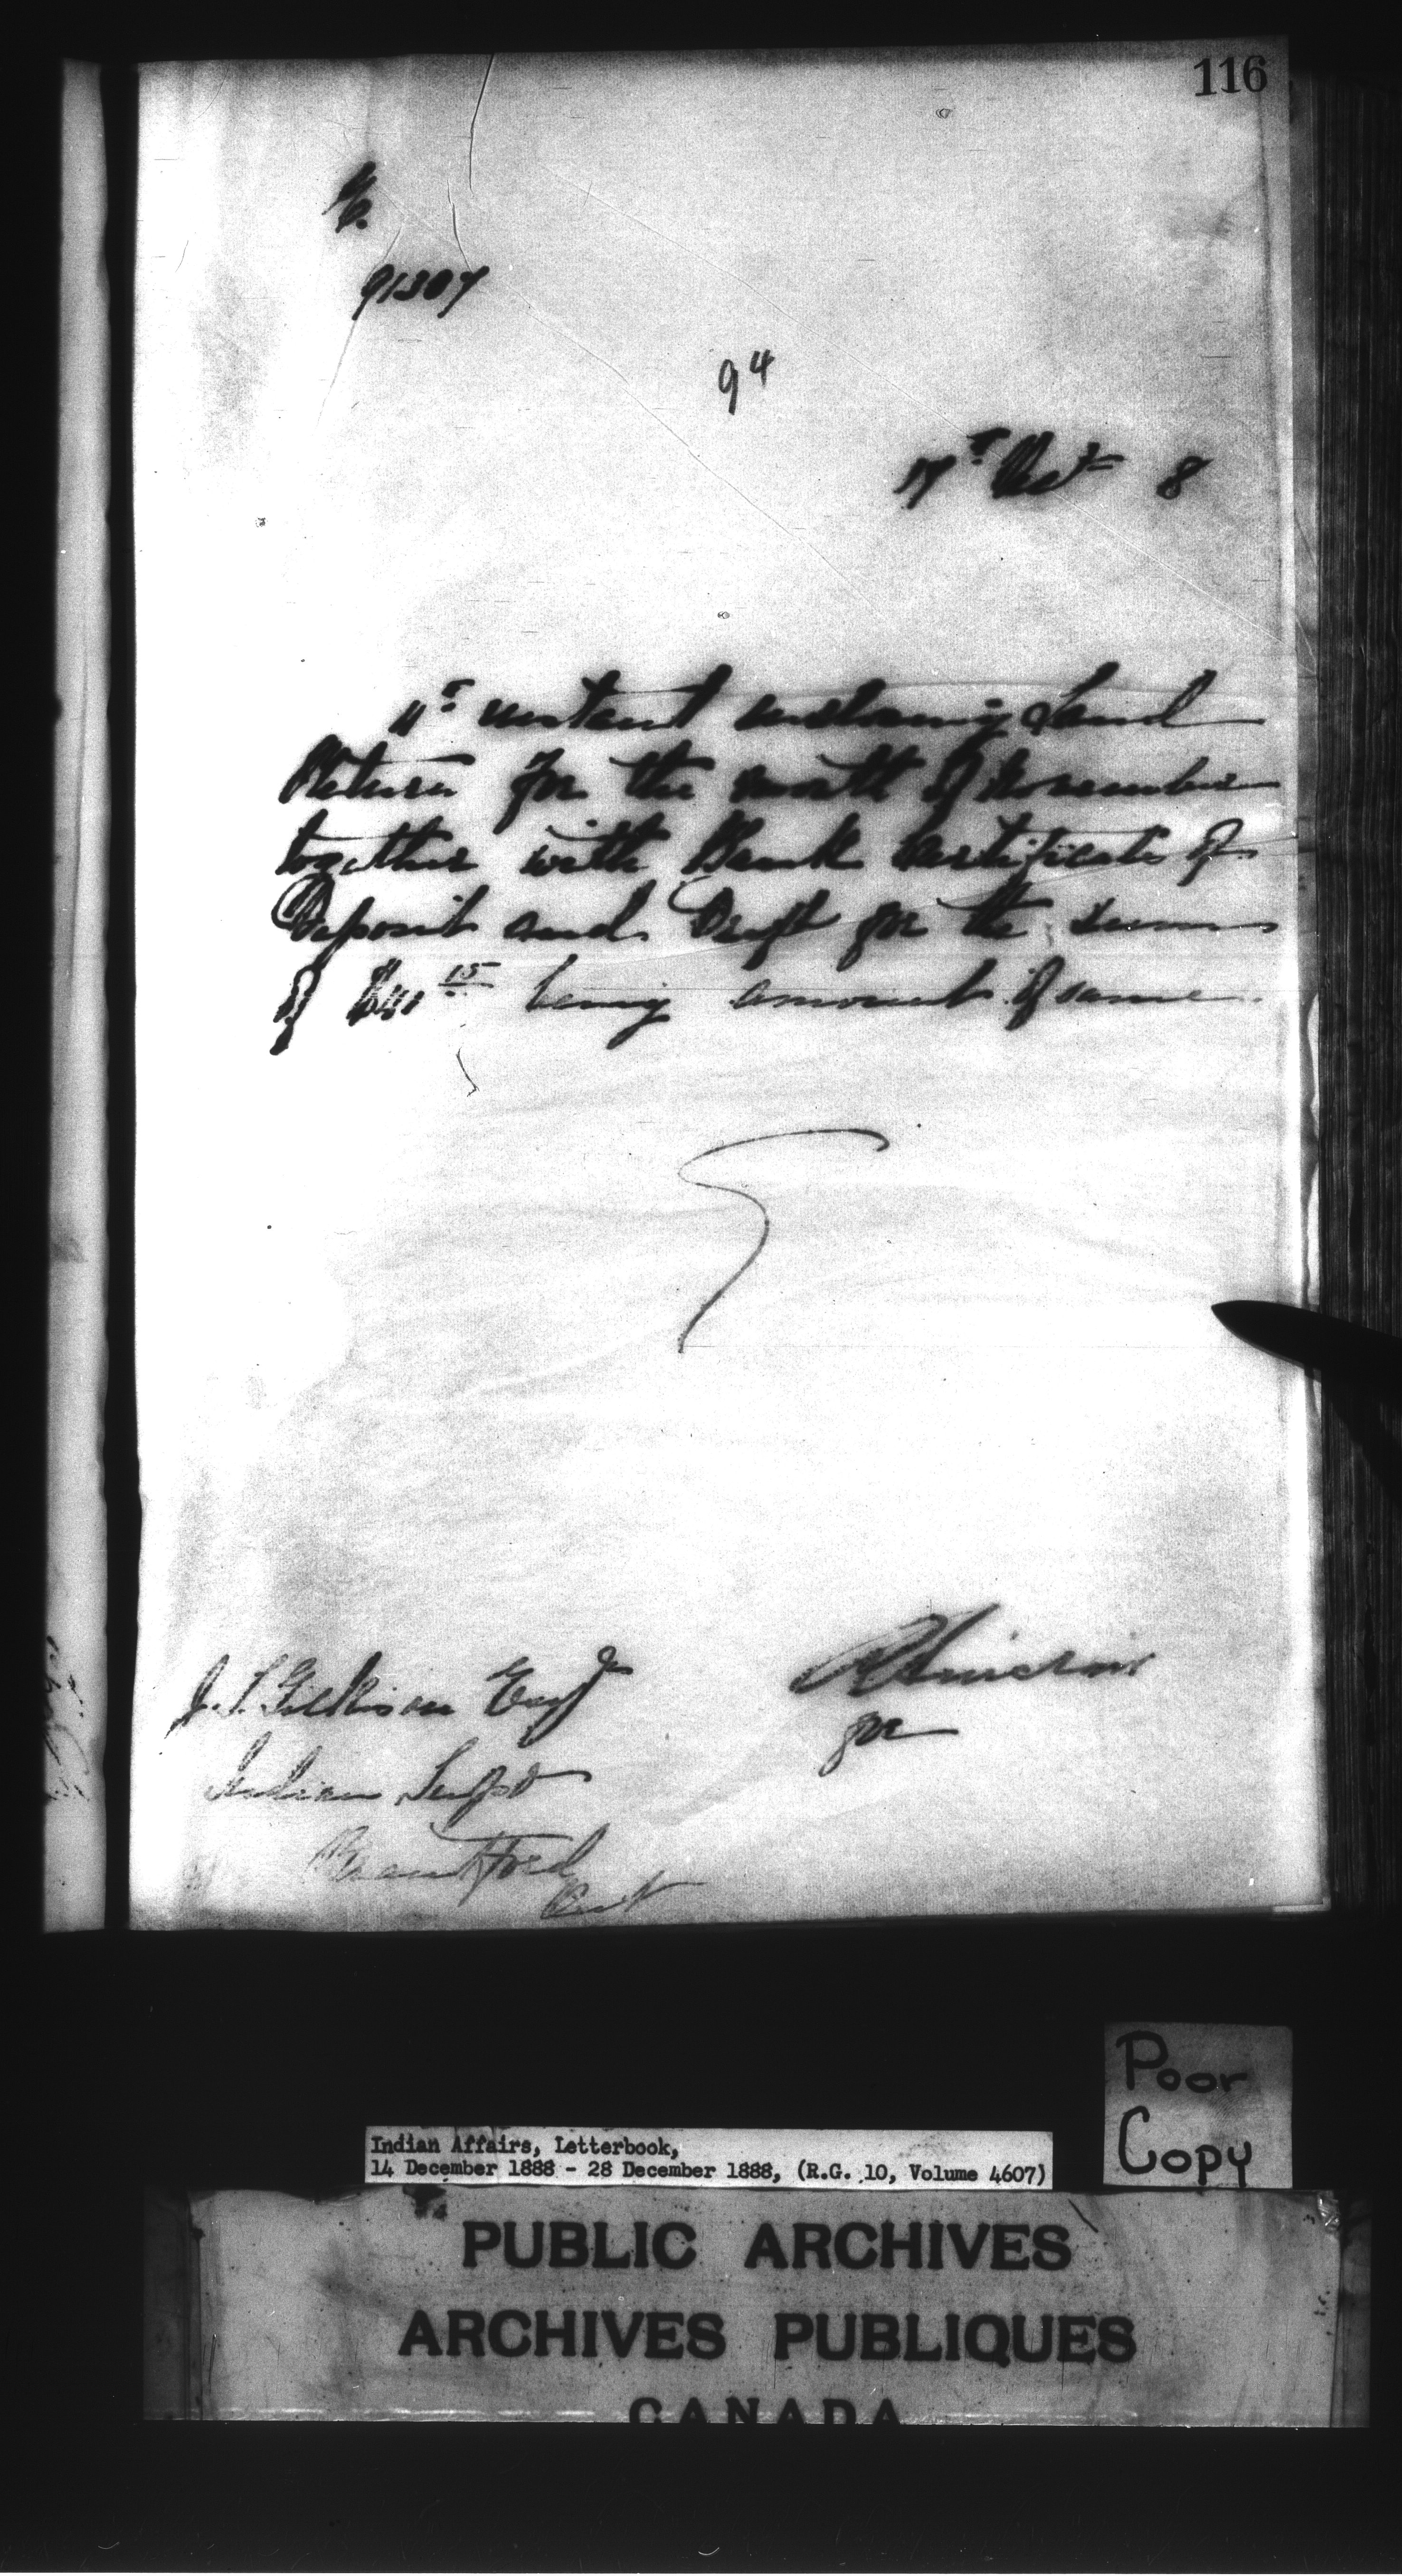 116
91307
94
17th Dec 8
11th instant enclosing Land
Return for the month of November
together with Bank Certificate of
Deposit and Draft for the sum
of being amount of same.
J. T. Gilkison Esqr
Indian Supt
Brantford
Ont
R Sinclair
for
Poor
Copy
Indian Affairs, Letterbook,
14 December 1888 - 28 December 1888, (R.G. 10, Volume 4607)
PUBLIC ARCHIVES
ARCHIVES PUBLIQUES
CANADA